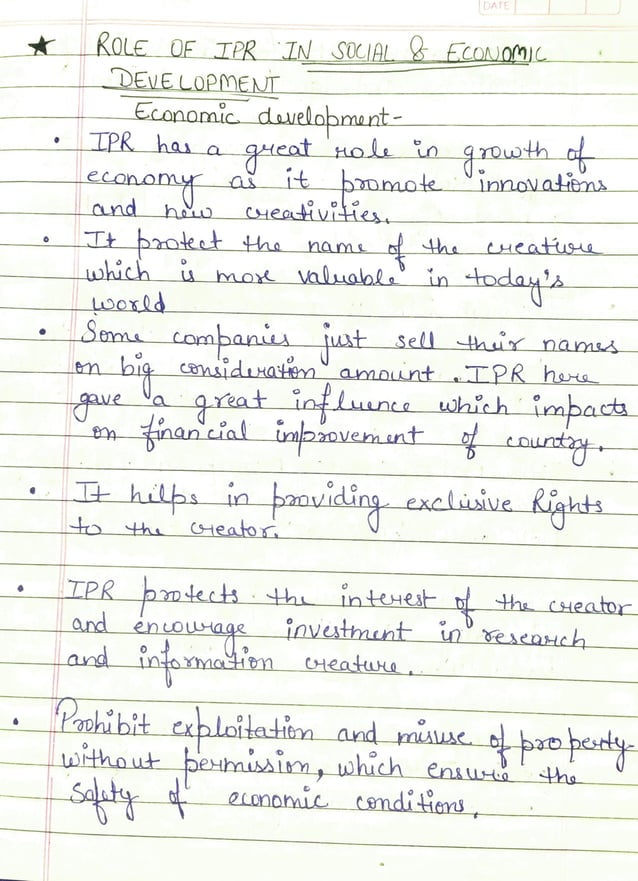 DATE
★ ROLE OF IPR IN SOCIAL & ECONOMIC
DEVELOPMENT
Economic development-
• IPR has a great role in growth of
economy as it promote innovations
and new creativities.
• It protect the name of the creature
which is more valuable in today's
world
• Some companies just sell their names
on big consideration amount. IPR here
gave a great influence which impacts
on financial improvement of country.
• It helps in providing exclusive Rights
to the creator.
• IPR protects the interest of the creator
and encourage investment in research
and information creature.
• Prohibit exploitation and misuse of property
without permission, which ensure the
safety of economic conditions.